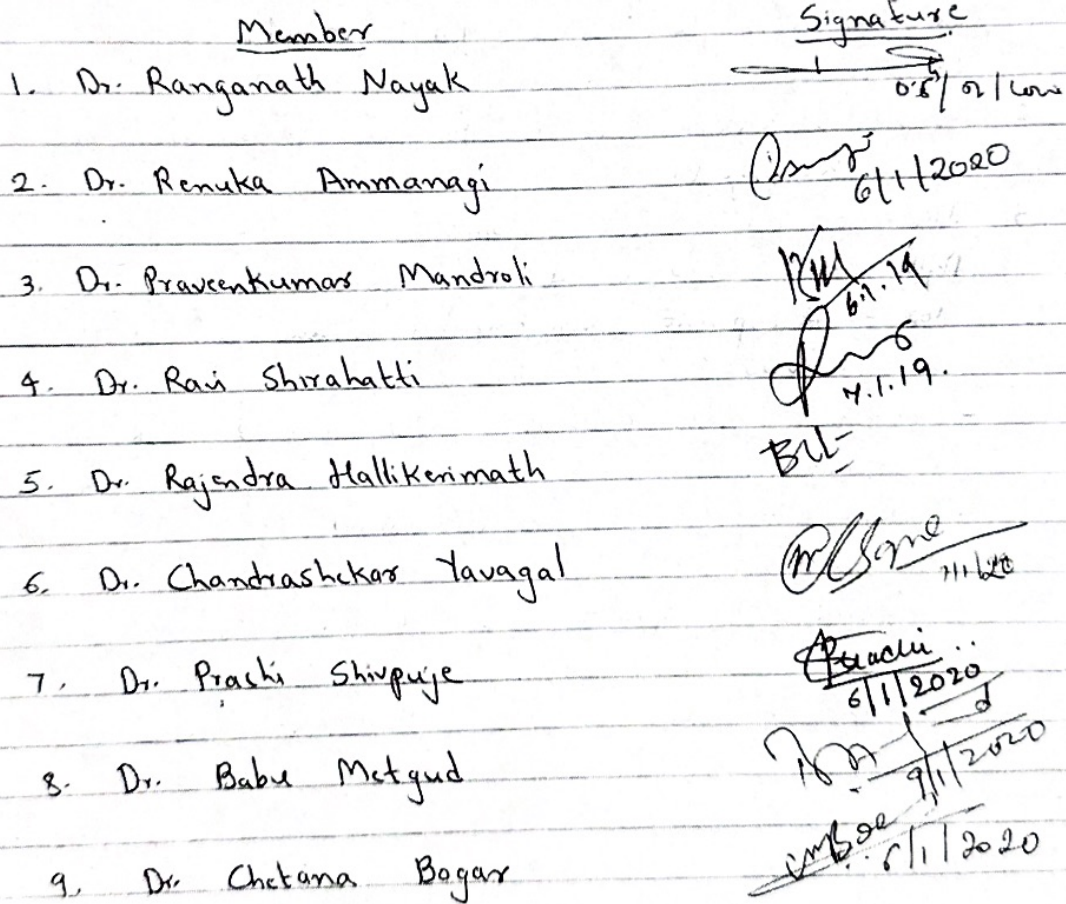 Member Signature
1. Dr. Ranganath Nayak
2. Dr. Renuka Ammanagi 6/1/2020
3. Dr. Praveenkumar Mandroli 6.1.19
4. Dr. Ravi Shirahatti 7.1.19.
5. Dr. Rajendra Hallikerimath
6. Dr. Chandrashekar Yavagal
7. Dr. Prachi Shivpuje Prachi 6/1/2020
8. Dr. Babu Metgud 9/1/2020
9. Dr. Chetana Bogar 6/1/2020